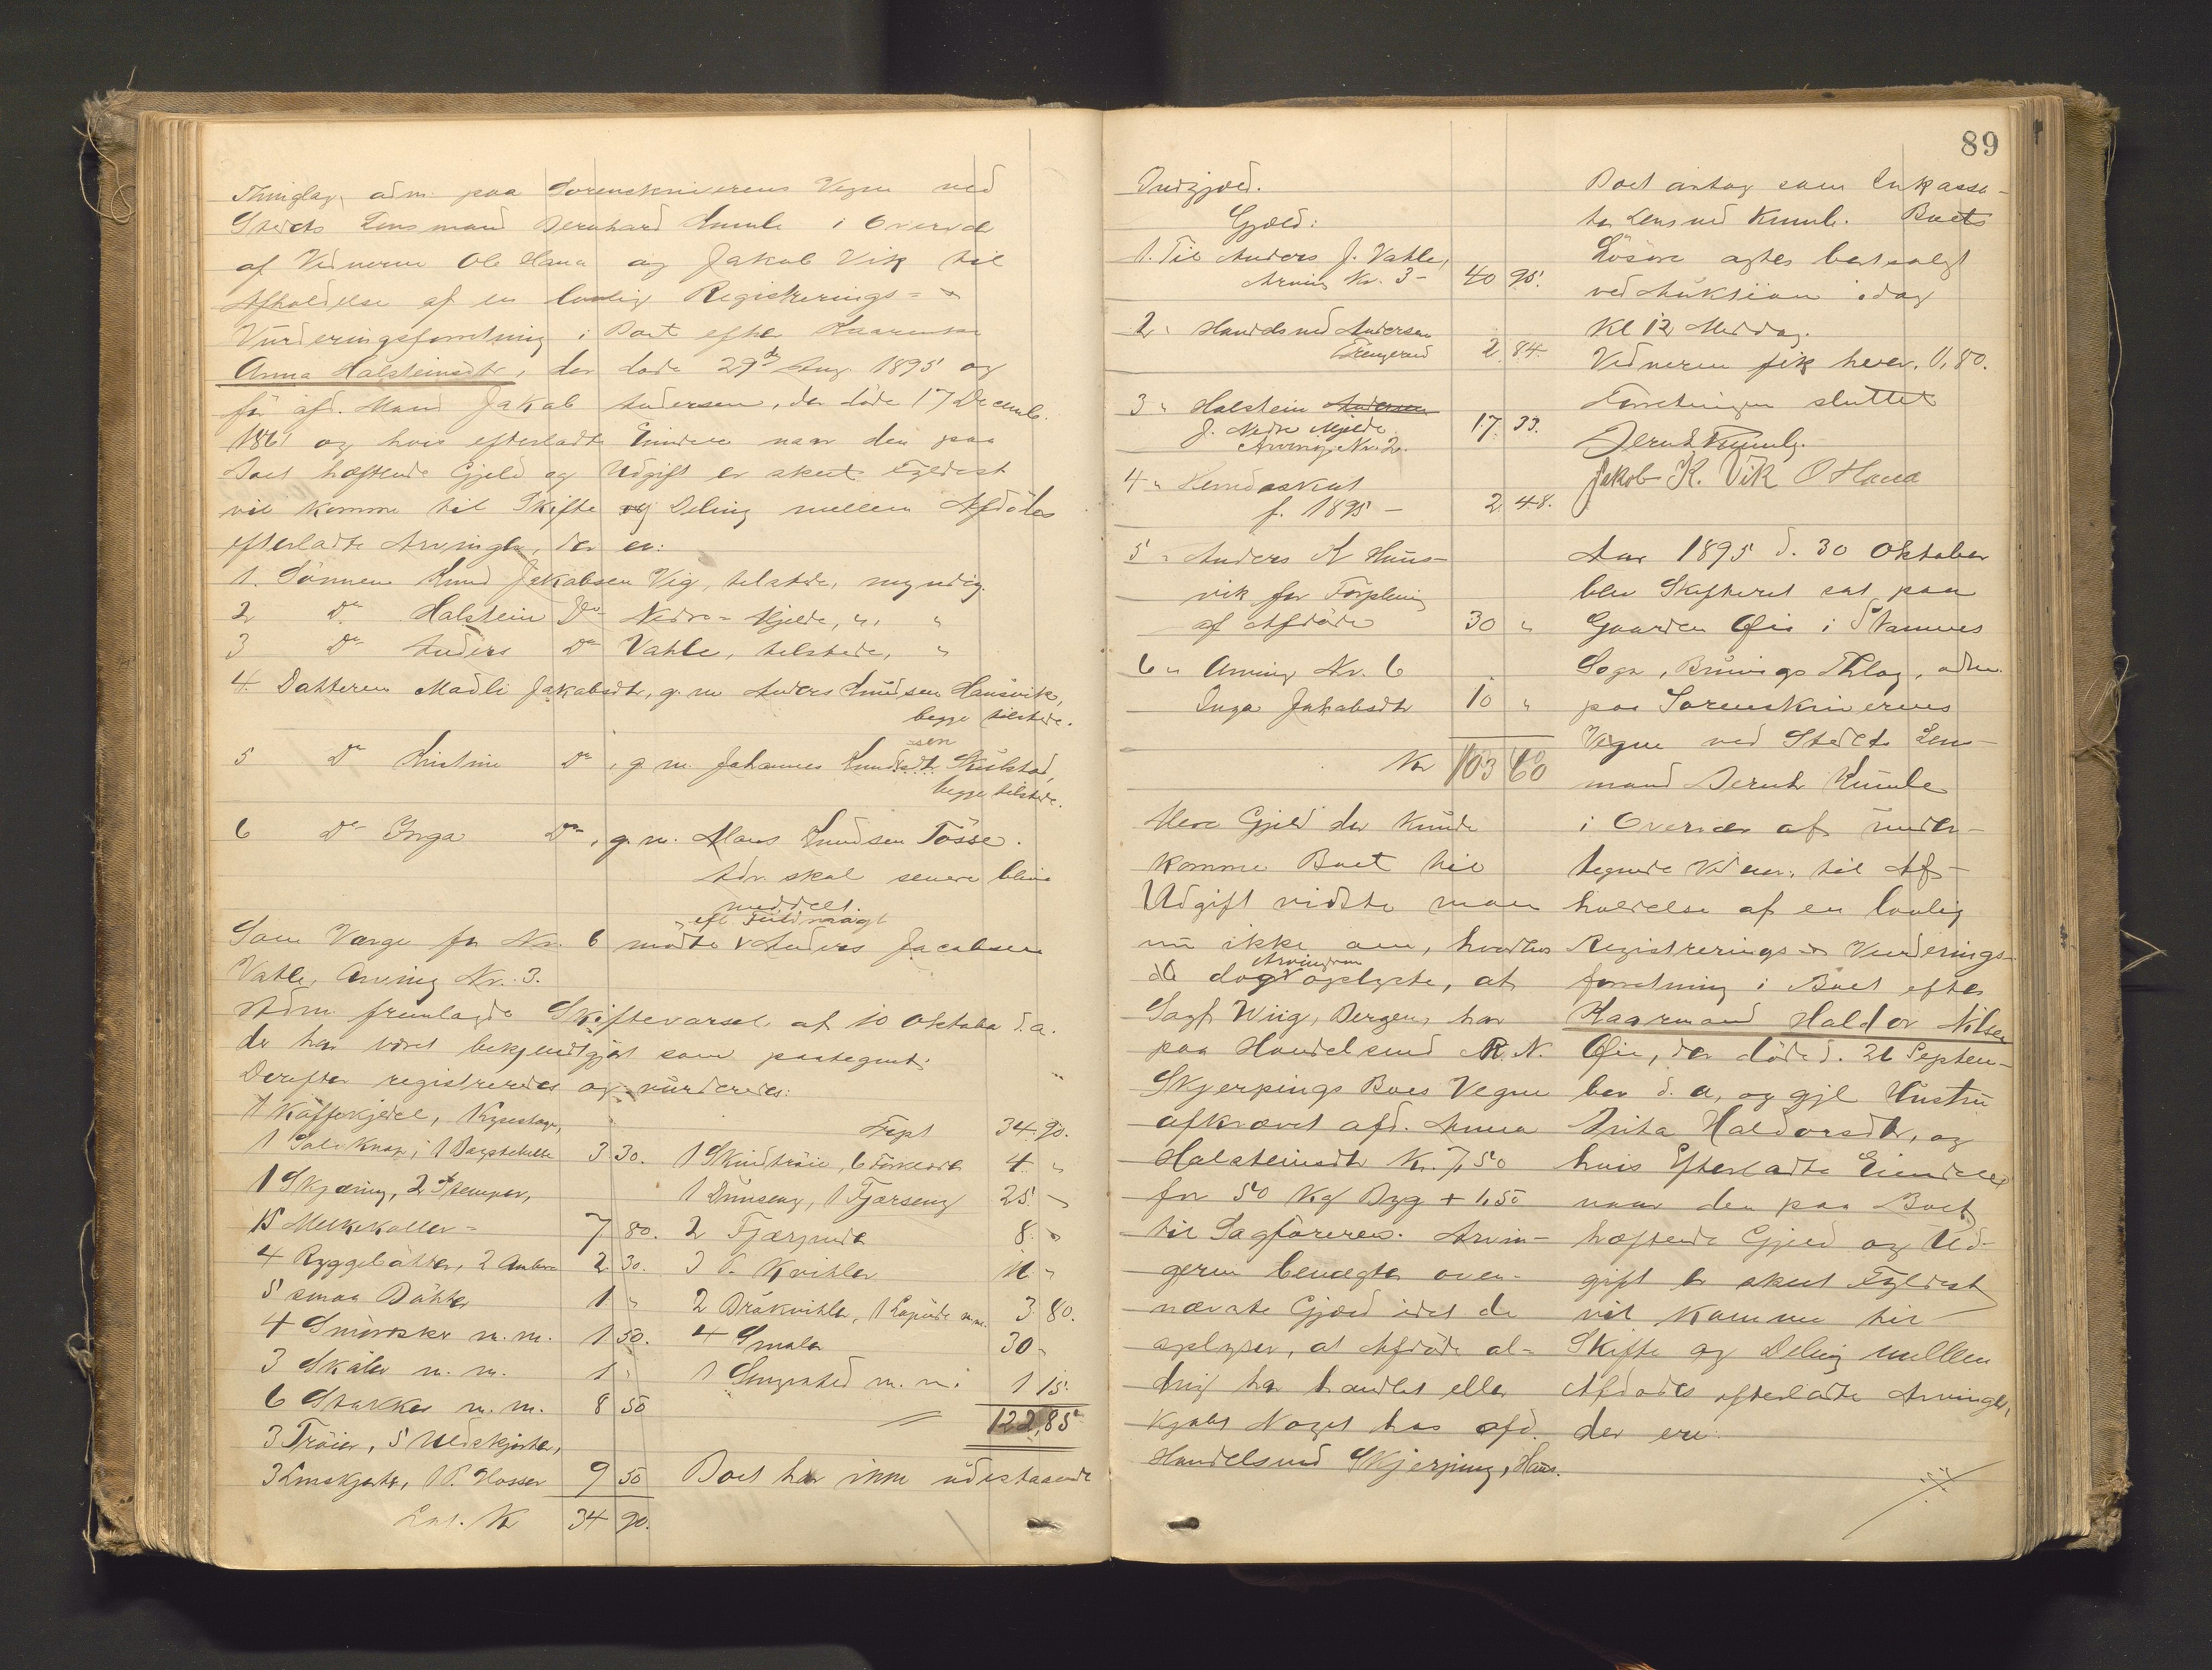 Thinglag, adm. paa Sorenskriverens Vegne ved
Stedets Lensmand Bernhard Kumle i Overvær
af Vidnerne Ole Hana og Jakob Vik til
Afholdelse af en lovlig Registrerings= &
Vurderingsforretning i Boet efter Kaarenke
Anna Halsteinsdtr, der døde 29de Aug 1895 og
før afd. Mand Jakob Andersen, der døde 17 Decemb.
1861 og hvis efterladte Eiendele naar den paa
Boet hæftende Gjeld og Udgift er skeet Fyldest
vil komme til Skifte og Deling mellem Afdødes
efterladte Arvinger, der er:
1. Sønnen Knud Jakobsen Vig, tilstede, myndig.
2 Do Halstein Do Nedre-Mjelde, "
3 Do Anders Do Vahle, tilstede, "
4. Datteren Madli Jakobsdtr, g. m. Anders Knudsen Hansvik,
begge tilstede.
5 Do Kristine Do, g. m. Johannes Knudsdtr sen Skulstad,
begge tilstede.
6 Do Inga Do, g. m. Mons Knudsen Tøsse.
Adr. skal senere blive
meddelt.
efl Fuldmagt
Som Verge for Nr. 6 mødte Anders Jacobsen
Vahle, Arving Nr. 3.
Adm. fremlagde Skiftevarsel af 10 Oktober d.a.
der har været bekjendtgjort som paategnet.
Derefter registreredes og vurderedes:
1 Kaffekjedel,
3 30.
1 Skjæring, 2 Stemper,
15 Melkekoller - 7 80.
4 Ryggebøtter, 2 Ambere 2 30.
5 smaa Bøtter 1 "
4 m. m. 1 50.
3 Skåler m. m. 1 "
6 Stakker m. m. 8 50
3 Trøier, 5 Uldskjorter,
3 Linskjorter, 1 P. Hosser 9 50
Lat. Kr 34 90.
Trpt 34 90.
1 Skindtrøie, 6 Forklæder 4 "
1 Dunseng, 1 Fjærseng 25 "
2 Fjærpuder 8 "
3 Kvitler 11 "
2 Bråkvitler, 1 m.m. 3 80.
4 Smaler 30 "
1 m. m. 1 15.
122,85
Boet har inne udestaaende
89
Indgjæld.
Gjæld:
1. Til Anders J. Vahle,
Arving Nr. 3 - 40 95.
2 " Handelsmd Andersen
Trengereid 2 84.
3 " Halstein Andersen
J. Nedre Mjelde
Arving Nr. 2. 17. 33.
4 " Herredsskat
f. 1895 - 2 48.
5 " Anders K Hans-
vik for Forpleining
af Afdøde 30 "
6 " Arving Nr. 6
Inga Jakobsdtr 10 "
Kr 103 60
Mere Gjeld der kunde
komme Boet til
Udgift vidste man
nu ikke om, hvorhos
de dog Arvingerne oplyste, at
Sagf. Wiig, Bergen, har
paa Handelsmd R. N.
Skjerpings Boes Vegne
afkrævet afd. Anna
Halsteinsdtr Kr. 7,50
for 50 Kg Byg + 1,50
til Sagføreren. Arvin-
gerne benegter oven-
nævnte Gjæld idet de
oplyser, at Afdøde al-
drig har handlet eller
kjøbt Noget hos afd.
Handelsmd Skjerping, Haus.
Boet antog som Inkassa-
tor Lensmd Kumle. Boets
Løsøre agtes bortsolgt
ved Auktion idag
Kl 12 Middag.
Vidnerne fik hver 0,80.
Forretningen sluttet
Bernh Kumle.
Jakob K. Vik O Hana
Aar 1895 d. 30 Oktober
blev Skifteret sat paa
Gaarden Øie i Stamnes
Sogn, Bruvigs Thlag, adm.
paa Sorenskriverens
Vegne ved Stedets Lens-
mand Bernh Kumle
i Overvær af under-
tegnede Vidner, til Af-
holdelse af en lovlig
Registrerings & Vurderings-
forretning i Boet efter
Kaarmand Haldor Nilsen
Øie, der døde d. 21 Septem-
ber d. a, og gjl Hustru
Brita Haldorsdtr, og
hvis Efterladte Eiendele
naar den paa Boet
hæftende Gjeld og Ud-
gift er skeet Fyldest
vil komme til
Skifte og Deling mellem
Afdødes efterladte Arvinger,
der ere: